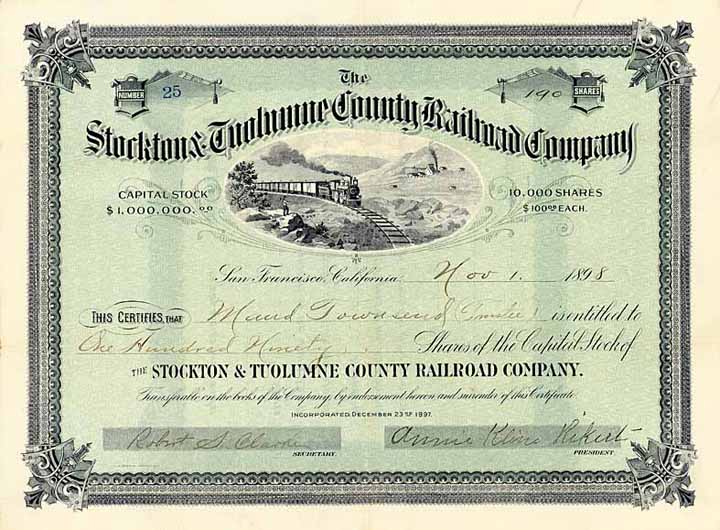 The
NUMBER 25
190 SHARES
Stockton & Tuolumne County Railroad Company
CAPITAL STOCK
$1,000,000.00
10,000 SHARES
$100.00 EACH.
San Francisco, California, Nov 1. 1898
THIS CERTIFIES, THAT Maud Townsend Trustee is entitled to
One Hundred Ninety Shares of the Capital Stock of
THE STOCKTON & TUOLUMNE COUNTY RAILROAD COMPANY.
Transferable on the books of the Company, by endorsement hereon and surrender of this Certificate.
INCORPORATED DECEMBER 23RD 1897.
Robert S. Clarke
Annie Kline Rikert
SECRETARY.
PRESIDENT.